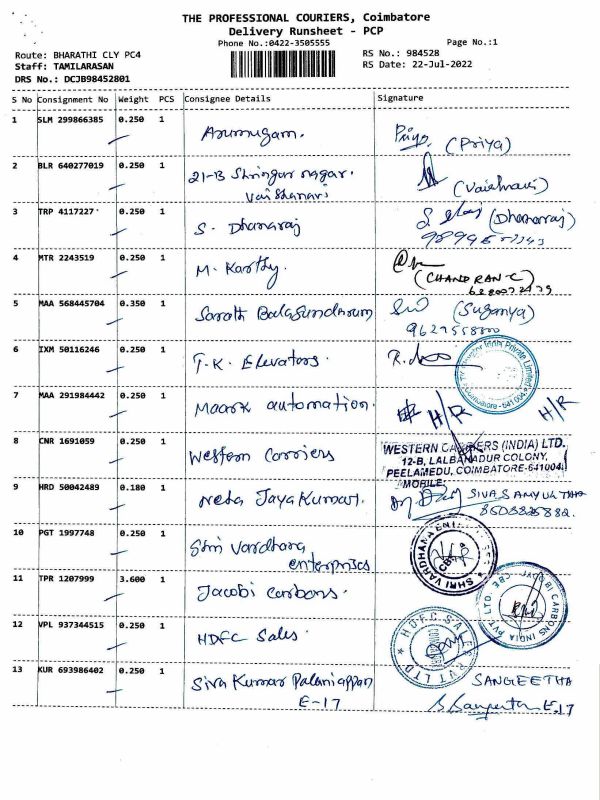 THE PROFESSIONAL COURIERS, Coimbatore
Delivery Runsheet - PCP
Phone No.:0422-3505555
Page No.:1
Route: BHARATHI CLY PC4
RS No.: 984528
Staff: TAMILARASAN
RS Date: 22-Jul-2022
DRS No.: DCJB98452801
S No Consignment No Weight PCS Consignee Details Signature
1 SLM 299866385 0.250 1 Arumugam. Priya. (Priya)
2 BLR 640277019 0.250 1 21-B Shringar nagar. (Vaishnavi)
Vaishanavi
3 TRP 4117227 0.250 1 S. Dhanaraj (Dhanaraj)
4 MTR 2243519 0.250 1 M. Karthy.
(CHANDRAN-C)
5 MAA 568445704 0.350 1 Sarath Balasundaram (Suganya)
6 IXM 50116246 0.250 1 T.K. Elevators.
7 MAA 291984442 0.250 1 Maark automation. H/R H/R
8 CNR 1691059 0.250 1 Western Carriers WESTERN CARRIERS (INDIA) LTD.
12-B, LALBAHADUR COLONY,
PEELAMEDU, COIMBATORE-641004.
MOBILE:
9 HRD 50042489 0.180 1 Neha Jayakumar. SIVASAMYUKTHA
10 PGT 1997748 0.250 1 Shri Vardhana
enterprises
SHRI VARDHANA
11 TPR 1207999 3.600 1 Jacobi Carbons. JACOBI CARBONS INDIA PVT LTD. CBE
12 VPL 937344515 0.250 1 HDFC Sales. HDFC SALES PVT LTD
13 KUR 693986402 0.250 1 Siva Kumar Palaniappan SANGEETHA
E-17 S. Sangeetha E.17